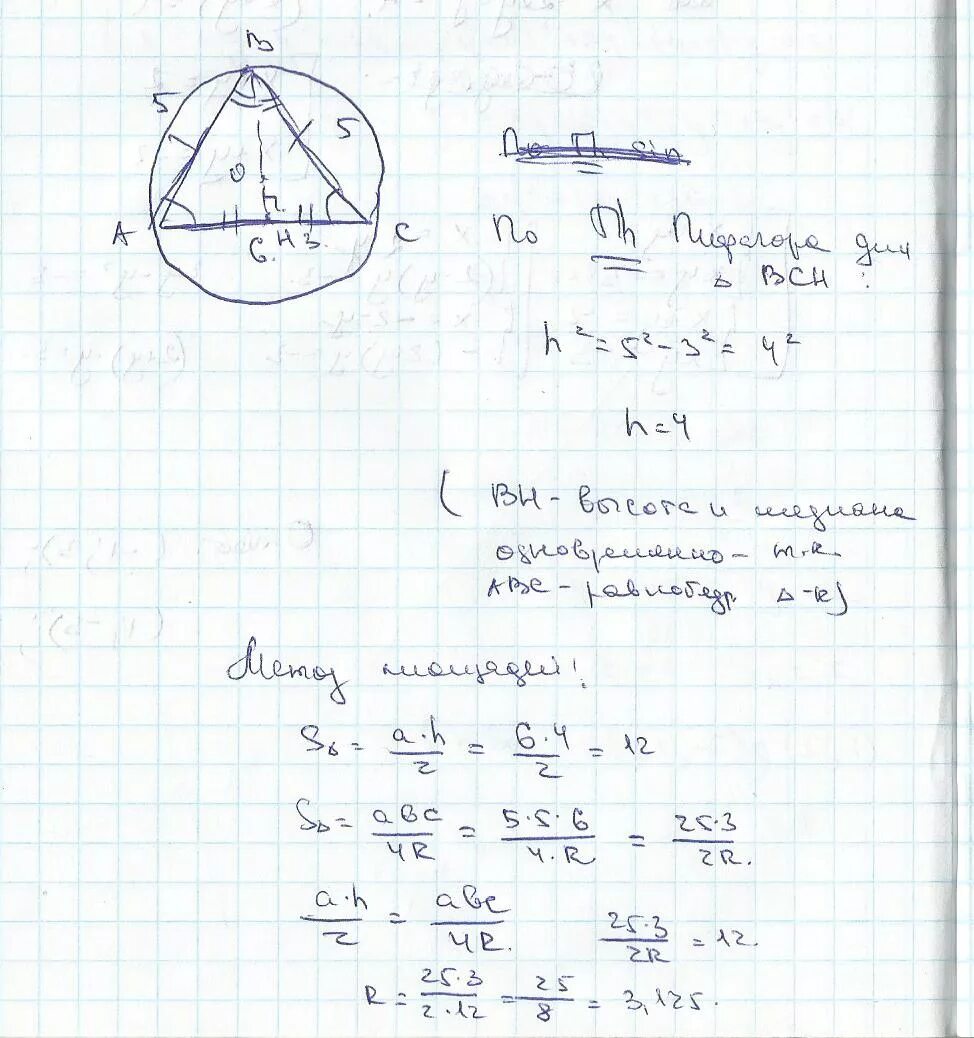 B
5
5
O
h
A
H
3.
C
6.
По Th sin
По Th Пифагора для
△ BCH :
h² = 5² - 3² = 4²
h = 4
( BH - высота и медиана
одновременно - т.к.
ABC - равнобедр. △-к)
Метод площадей!
S△ = a·h/2 = 6·4/2 = 12
S△ = abc/4R = 5·5·6/4·R = 25·3/2R.
a·h/2 = abc/4R. 25·3/2R = 12.
R = 25·3/2·12 = 25/8 = 3,125.